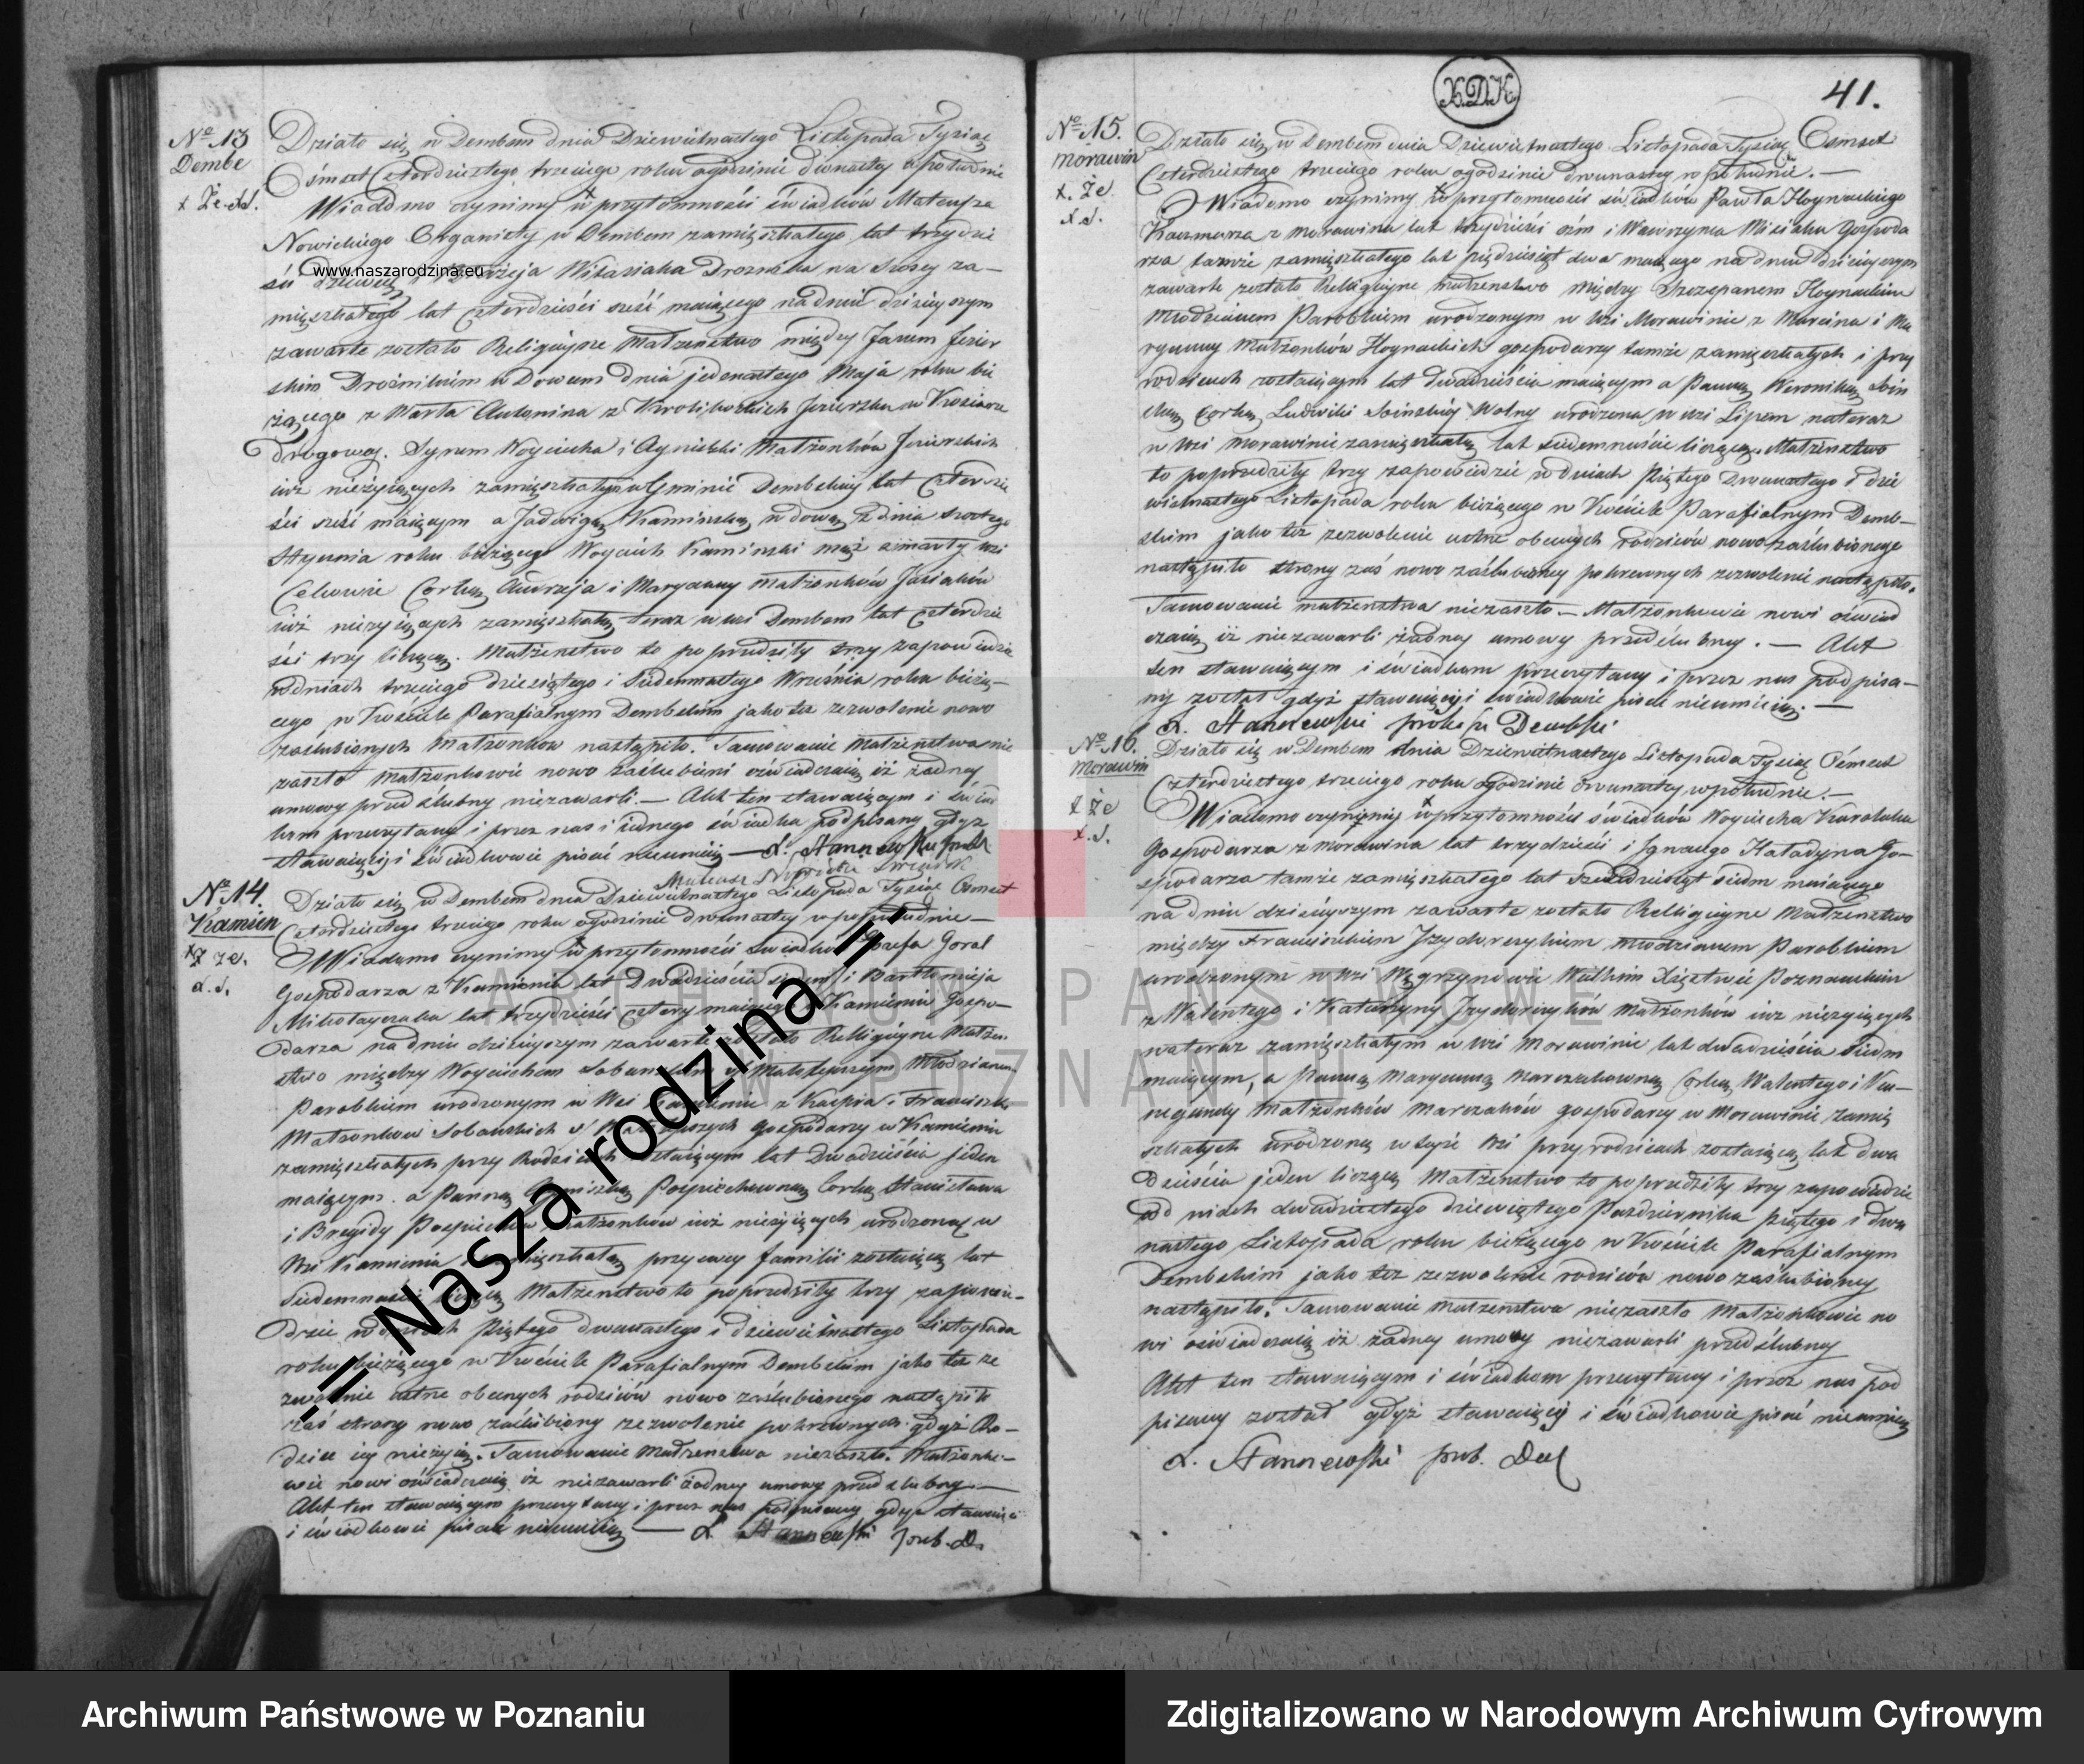 No 13
Dembe
Działo się w Dembem dnia Dziewiętnastego Listopada Tysiąc
Ośmset Czterdziestego trzeciego roku o godzinie dwunastey w południe
Wiadomo czynimy iż w przytomności świadków Mateusza
Nowickiego Organisty w Dembem zamięszkałego lat trzydzie
ści dziewięć i Witasiaka Drożnika na szosej za-
www.naszarodzina.eu
mięszkałego lat czterdzieści sześć maiącego na dniu dzisieyszym
zawarte zostało Religijne Małżeństwo między Janem Jezier
skim Drożnikiem Wdowcem dnia jedenastego Maja roku bie
żącego z Marła Antonina z Jezierska w Koszarze
Drogowey. Synem Woyciecha i Agnieszki Małżonków Jezierskich
iuż nieżyiących zamięszkałego w Gminie Dembskiej lat czterdzie
ści sześć maiącym a Jadwigą Kamińską wdową z dnia szóstego
Stycznia roku bieżącego Woyciech Kaminski mąż zmarły wsi
Cekowie Corką Andrzeja i Maryanny Małżonków Jasiaków
iuż nieżyiących zamięszkałą teraz w wsi Dembem lat czterdzie
ści trzy liczącą. Małżeństwo to poprzedziły trzy zapowiedzie
w dniach trzeciego dziesiątego i Siedemnastego Września roku bieżą-
cego w Kościele Parafialnym Dembskim jako też zezwolenie nowo
zaślubionych Małżonków nastąpiło. Tamowanie Małżeństwa nie
zaszło Małżonkowie nowo zaślubieni oświadczaią iż żadney
umowy przedślubny niezawarli.— Akt ten stawaiącym i świad
kom przeczytany i przez nas i iednego świadka podpisany gdyż
stawaiący i świadkowie pisać nieumieią —
No 14.
Kamien
Działo się w Dembem dnia Dziewiętnastego Listopada Tysiąc Osmset
Czterdziestego trzeciego roku o godzinie dwunastey w południe—
Wiadomo czynimy iż w przytomności świadków Jozefa Goral
Gospodarza z Kamienia lat Dwadzieścia siedem i Bartłomieja
Mikołayczaka lat trzydzieści cztery maiącego z Kamienia Gospo-
darza na dniu dzisieyszym zawarte zostało Religijne Małżeń
stwo między Woyciechem Młodzianem
Parobkiem urodzonym w Wsi Kamieniu z Kacpra i Franciszki
Małżonków Sobańskich gospodarzy w Kamieniu
zamięszkałych przy Rodzicach zostaiącym lat Dwadzieścia jeden
maiącym. a Panną Pospiechowną Corką Stanisława
i Brygidy Małżonków iuż nieżyiących urodzoną w
Wsi Kamieniu i zamięszkałą przy swey familii zostaiącą lat
Siedemnaście liczącą Małżeństwo to poprzedziły trzy zapowie-
dzie w dniach Piątego dwunastego i dziewiętnastego Listopada
roku bieżącego w Kościele Parafialnym Dembskim jako też ze
zwolenie ustne obecnych rodziców nowo zaślubionego nastąpiło
zaś strony nowo zaślubiony zezwolenie pokrewnych gdyż Ro-
dzice iey nieżyią. Tamowanie Małżeństwa niezaszło. Małżonko-
wie nowi oświadczaią iż niezawarli żadney umowy przedślubny.—
Akt ten stawaiącym przeczytany i przez nas podpisany gdyż stawaiący
i świadkowie pisać nieumieią —
XDK
41.
No 15.
Morawin
Działo się w Dembem dnia Dziewiętnastego Listopada Tysiąc Osmset
Czterdziestego trzeciego roku o godzinie dwunastey w południe. —
Wiadomo czynimy iż w przytomności świadków Pawła Hoynackiego
Karczmarza z Morawina lat trzydzieści ośm i Wawrzyna Misiaka Gospoda
rza tamże zamięszkałego lat pięćdziesiąt dwa maiącego na dniu dzisieyszym
zawarte zostało Religijne małżeństwo między Szczepanem Hoynackim
Młodzianem Parobkiem urodzonym w Wsi Morawinie z Marcina i Ma
ryanny Małżonków Hoynackich gospodarzy tamże zamięszkałych i przy
rodzicach zostaiącym lat Dwadzieścia maiącym a Panną Weroniką
Corką Ludwiki Wolny urodzoną w wsi Lipem na teraz
w Wsi Morawinie zamięszkałą lat siedemnaście liczącą. Małżeństwo
to poprzedziły trzy zapowiedzie w dniach Piątego Dwunastego i dzie
więtnastego Listopada roku bieżącego w Kościele Parafialnym Demb-
skim jako też zezwolenie ustne obecnych rodziców nowo zaślubionego
nastąpiło strony zaś nowo zaślubioney pokrewnych zezwolenie nastąpiło.
Tamowanie małżeństwa niezaszło — Małżonkowie nowi oświad
czaią iż niezawarli żadney umowy przedślubney. — Akt
ten stawaiącym i świadkom przeczytany i przez nas podpisa-
ny został gdyż stawaiący i świadkowie pisać nieumieią. —
No 16.
Morawin
Działo się w Dembem dnia Dziewiętnastego Listopada Tysiąc Osmset
Czterdziestego trzeciego roku o godzinie dwunastey w południe. —
Wiadomo czynimy iż w przytomności świadków Woyciecha Karolaka
Gospodarza z Morawina lat trzydzieści i Ignacego Kaładyna Go-
spodarza tamże zamięszkałego lat siedm maiącego
na dniu dzisieyszym zawarte zostało Religijne Małżeństwo
między Franciszkiem Młodzianem Parobkiem
urodzonym w wsi Węgrzynowie Wielkim Xięstwie Poznańskim
z Walentego i Katarzyny Małżonków iuż nieżyiących
na teraz zamięszkałym w wsi Morawinie lat dwadzieścia siedm
maiącym, a Panną Maryanną Marszakowną Corką Walentego i Ku-
negundy Małżonków Marszaków gospodarzy w Morawinie zamię
szkałych urodzoną w tejże wsi przy rodzicach zostaiącą lat dwa
dzieścia jeden liczącą Małżeństwo to poprzedziły trzy zapowiedzie
w dniach dwudziestego dziewiątego Października piątego i dwu
nastego Listopada roku bieżącego w Kościele Parafialnym
Dembskim jako też zezwolenie rodziców nowo zaślubioney
nastąpiło. Tamowanie małżeństwa niezaszło Małżonkowie no
wi oświadczaią iż żadney umowy niezawarli przedślubney
Akt ten stawaiącym i świadkom przeczytany i przez nas pod
pisany został gdyż stawaiący i świadkowie pisać nieumieią
-= Nasza rodzina =-
ARCHIWUM PAŃSTWOWE
W POZNANIU
Archiwum Państwowe w Poznaniu
Zdigitalizowano w Narodowym Archiwum Cyfrowym